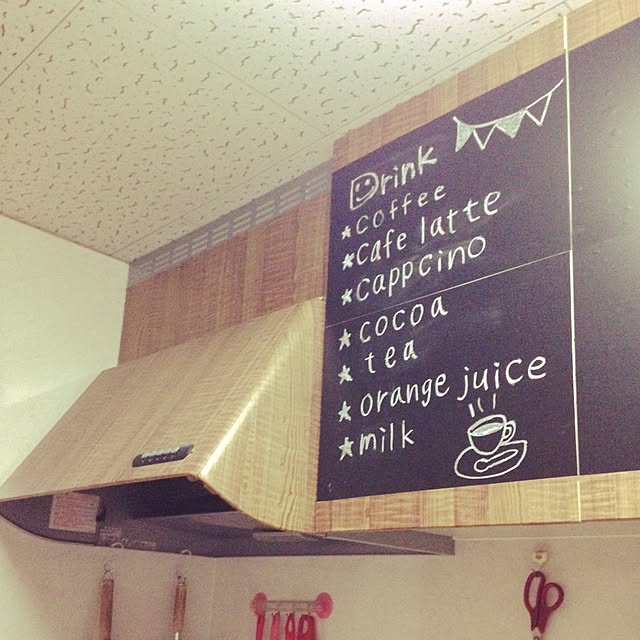 Drink
★coffee
★cafe latte
★cappcino
★cocoa
★tea
★orange juice
★milk